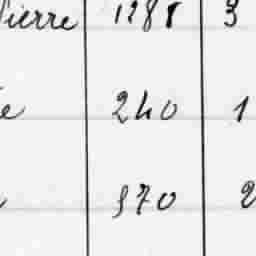 Pierre 1288 3
240 1
370 2